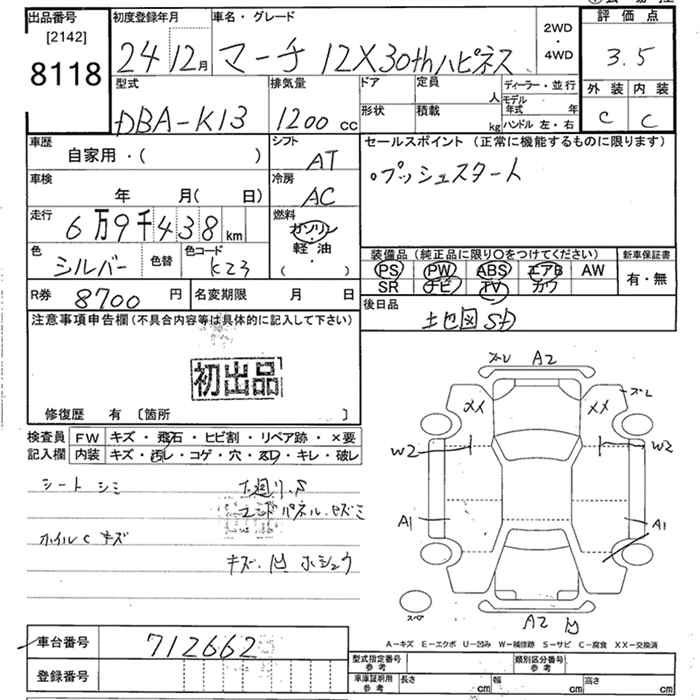 出品番号
[2142]
8118
初度登録年月
24 12月
車名・グレード
マーチ 12X30thハピネス
2WD
・
4WD
評価点
3.5
外装 内装
C C
型式
DBA-K13
排気量
1200 cc
ドア
定員
人
形状
積載
kg
ディーラー・並行
モデル年式 年
ハンドル 左・右
車歴
自家用・( )
シフト
AT
セールスポイント (正常に機能するものに限ります)
。プッシュスタート
車検
年 月( 日)
冷房
AC
走行
6万9千438km
燃料
ガソリン
軽・油
( )
色
シルバー
色替
色コード
K23
装備品 (純正品に限り○をつけてください)
PS PW ABS エアB AW
SR ナビ TV カワ
新車保証書
有・無
R券
8700 円
名変期限 月 日
後日品
土地図SD
注意事項申告欄 (不具合内容等は具体的に記入して下さい)
初出品
修復歴 有 〔箇所 〕
検査員
記入欄
FW キズ・飛石・ヒビ割・リペア跡・×要
内装 キズ・汚レ・コゲ・穴・スレ・キレ・破レ
シート シミ
下廻りS
エンドパネル
ホイルC キズ
キズ・凹 ホショウ
ズレ A2
ズレ
XX XX
W2 W2
A1 A1
スペア
A2 凹
A−キズ E−エクボ U−凹み W−補修跡 S−サビ C−腐食 XX−交換済
車台番号
712662
登録番号
型式指定番号
参考
類別区分番号
参考
車庫証明用
参考
長さ cm 幅 cm 高さ cm